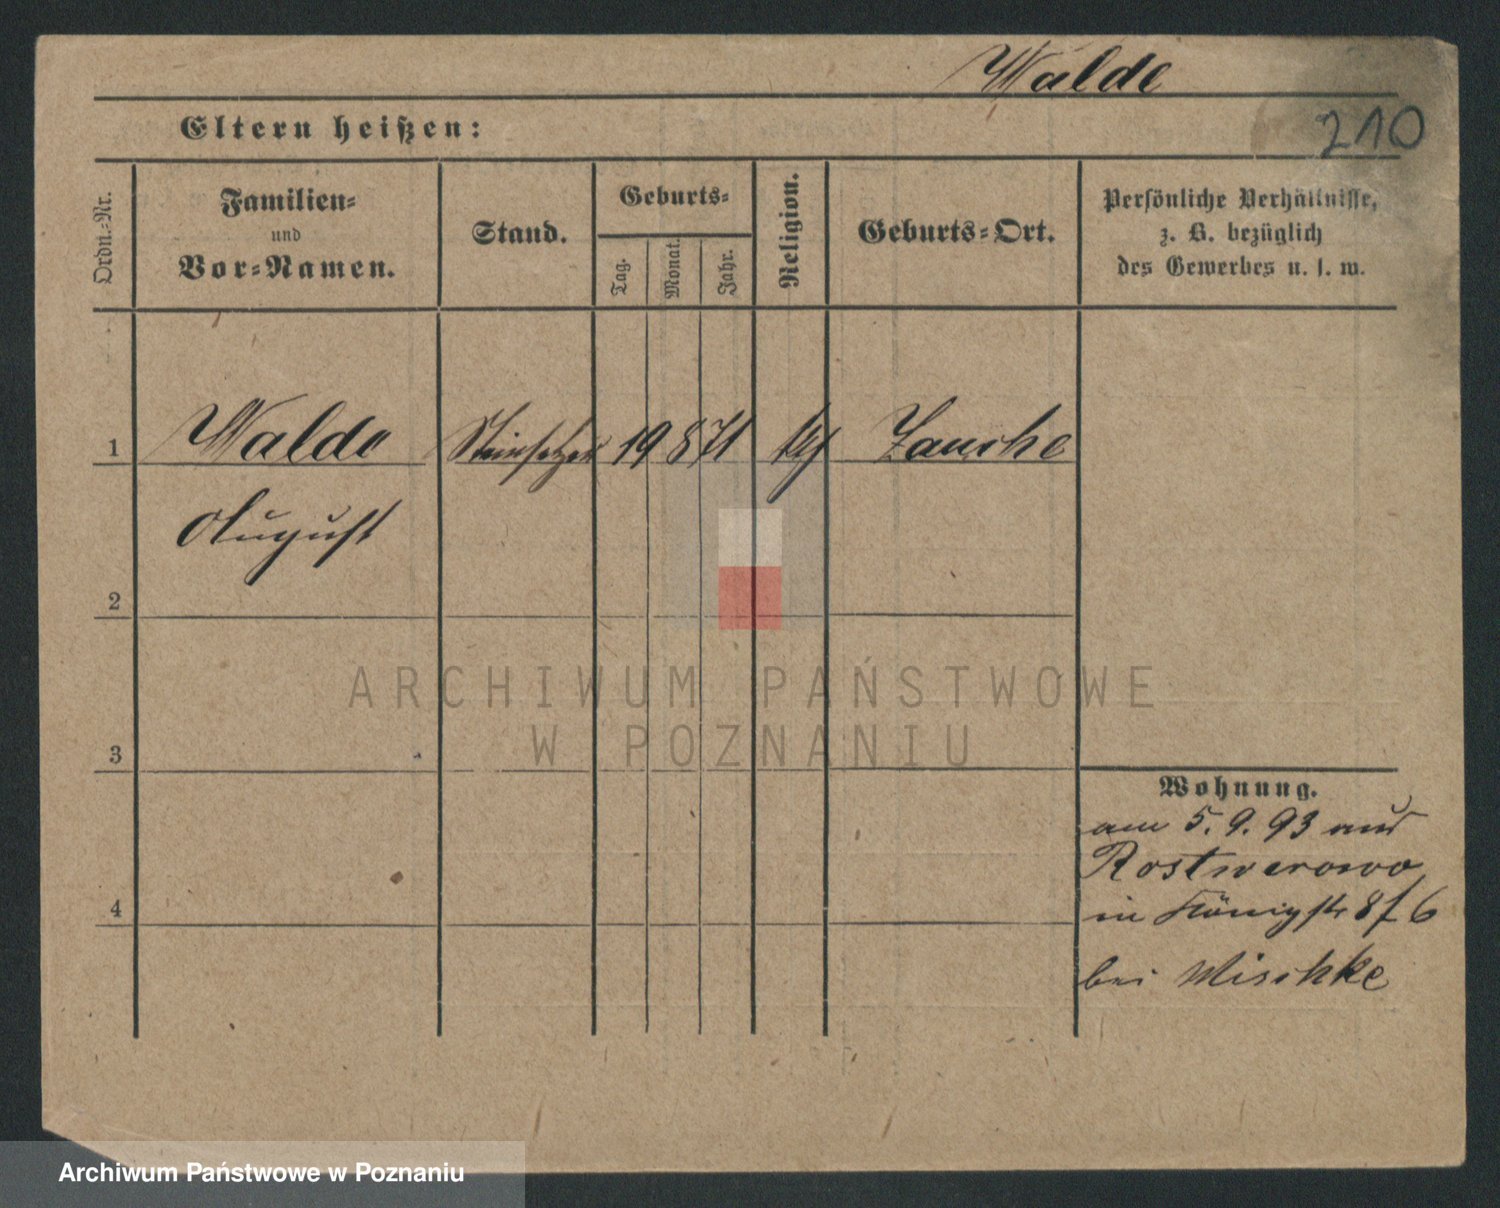 Walde
210
Eltern heißen:
Ordn.-Nr.
Familien-
und
Vor-Namen.
Stand.
Geburts-
Tag.
Monat.
Jahr.
Religion.
Geburts-Ort.
Persönliche Verhältnisse,
z. B. bezüglich
des Gewerbes u. s. w.
1 Walde Steinsetzer 19 8 71
August
2
3
4
Wohnung.
am 5. 9. 93 aus
Rostwerowo
in Königstr 8
bei Mischke
ARCHIWUM PAŃSTWOWE
W POZNANIU
Archiwum Państwowe w Poznaniu